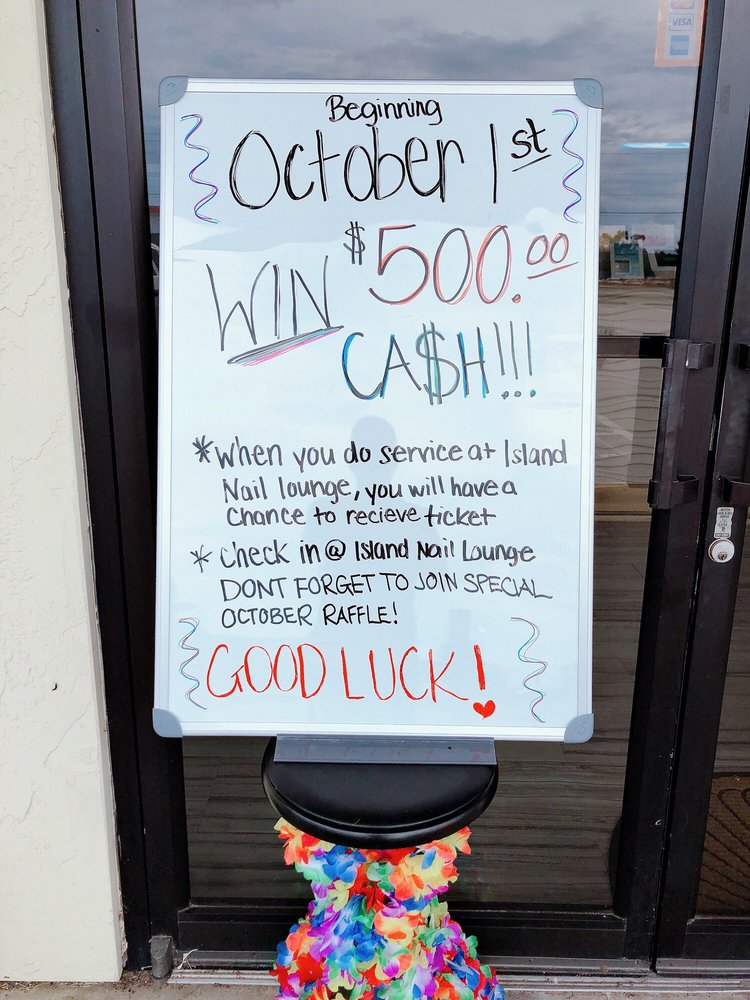 VISA
Beginning
October 1st
WIN $500.00
CA$H!!!
*When you do service at Island
Nail lounge, you will have a
Chance to recieve ticket
* Check in @ Island Nail Lounge
DONT FORGET TO JOIN SPECIAL
OCTOBER RAFFLE!
GOOD LUCK!